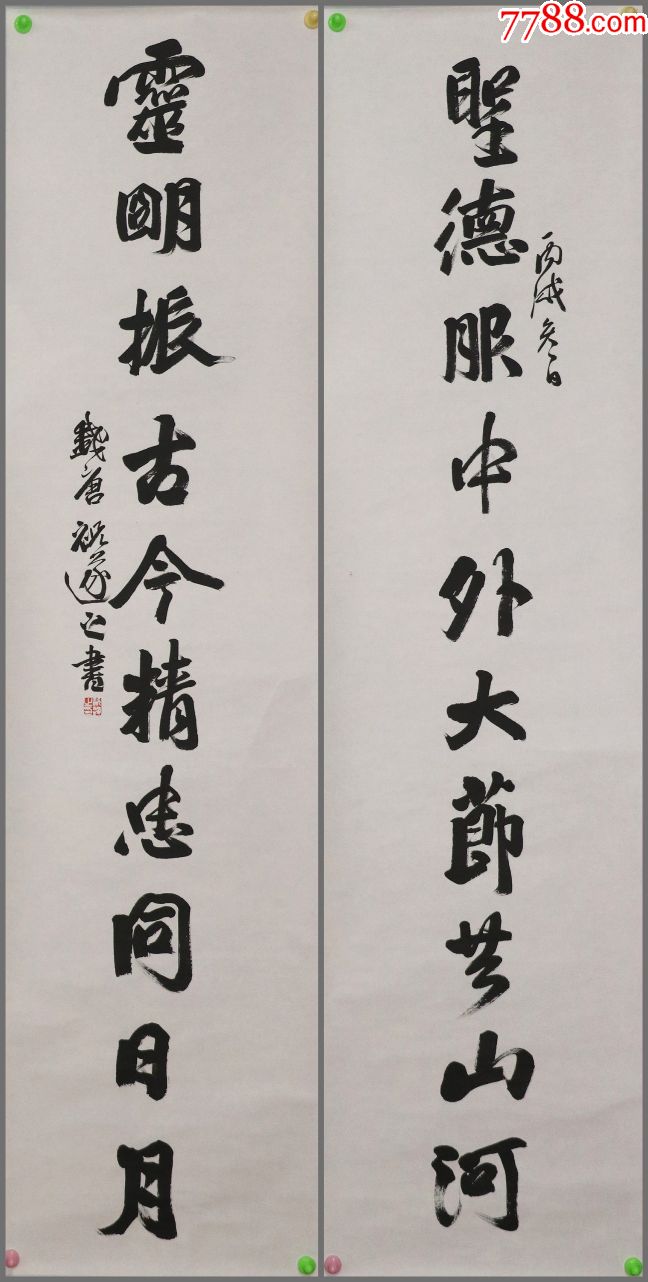 7788.com
聖德服中外大節共山河
丙戌冬日
靈明振古今精忠同日月
祝遂之書